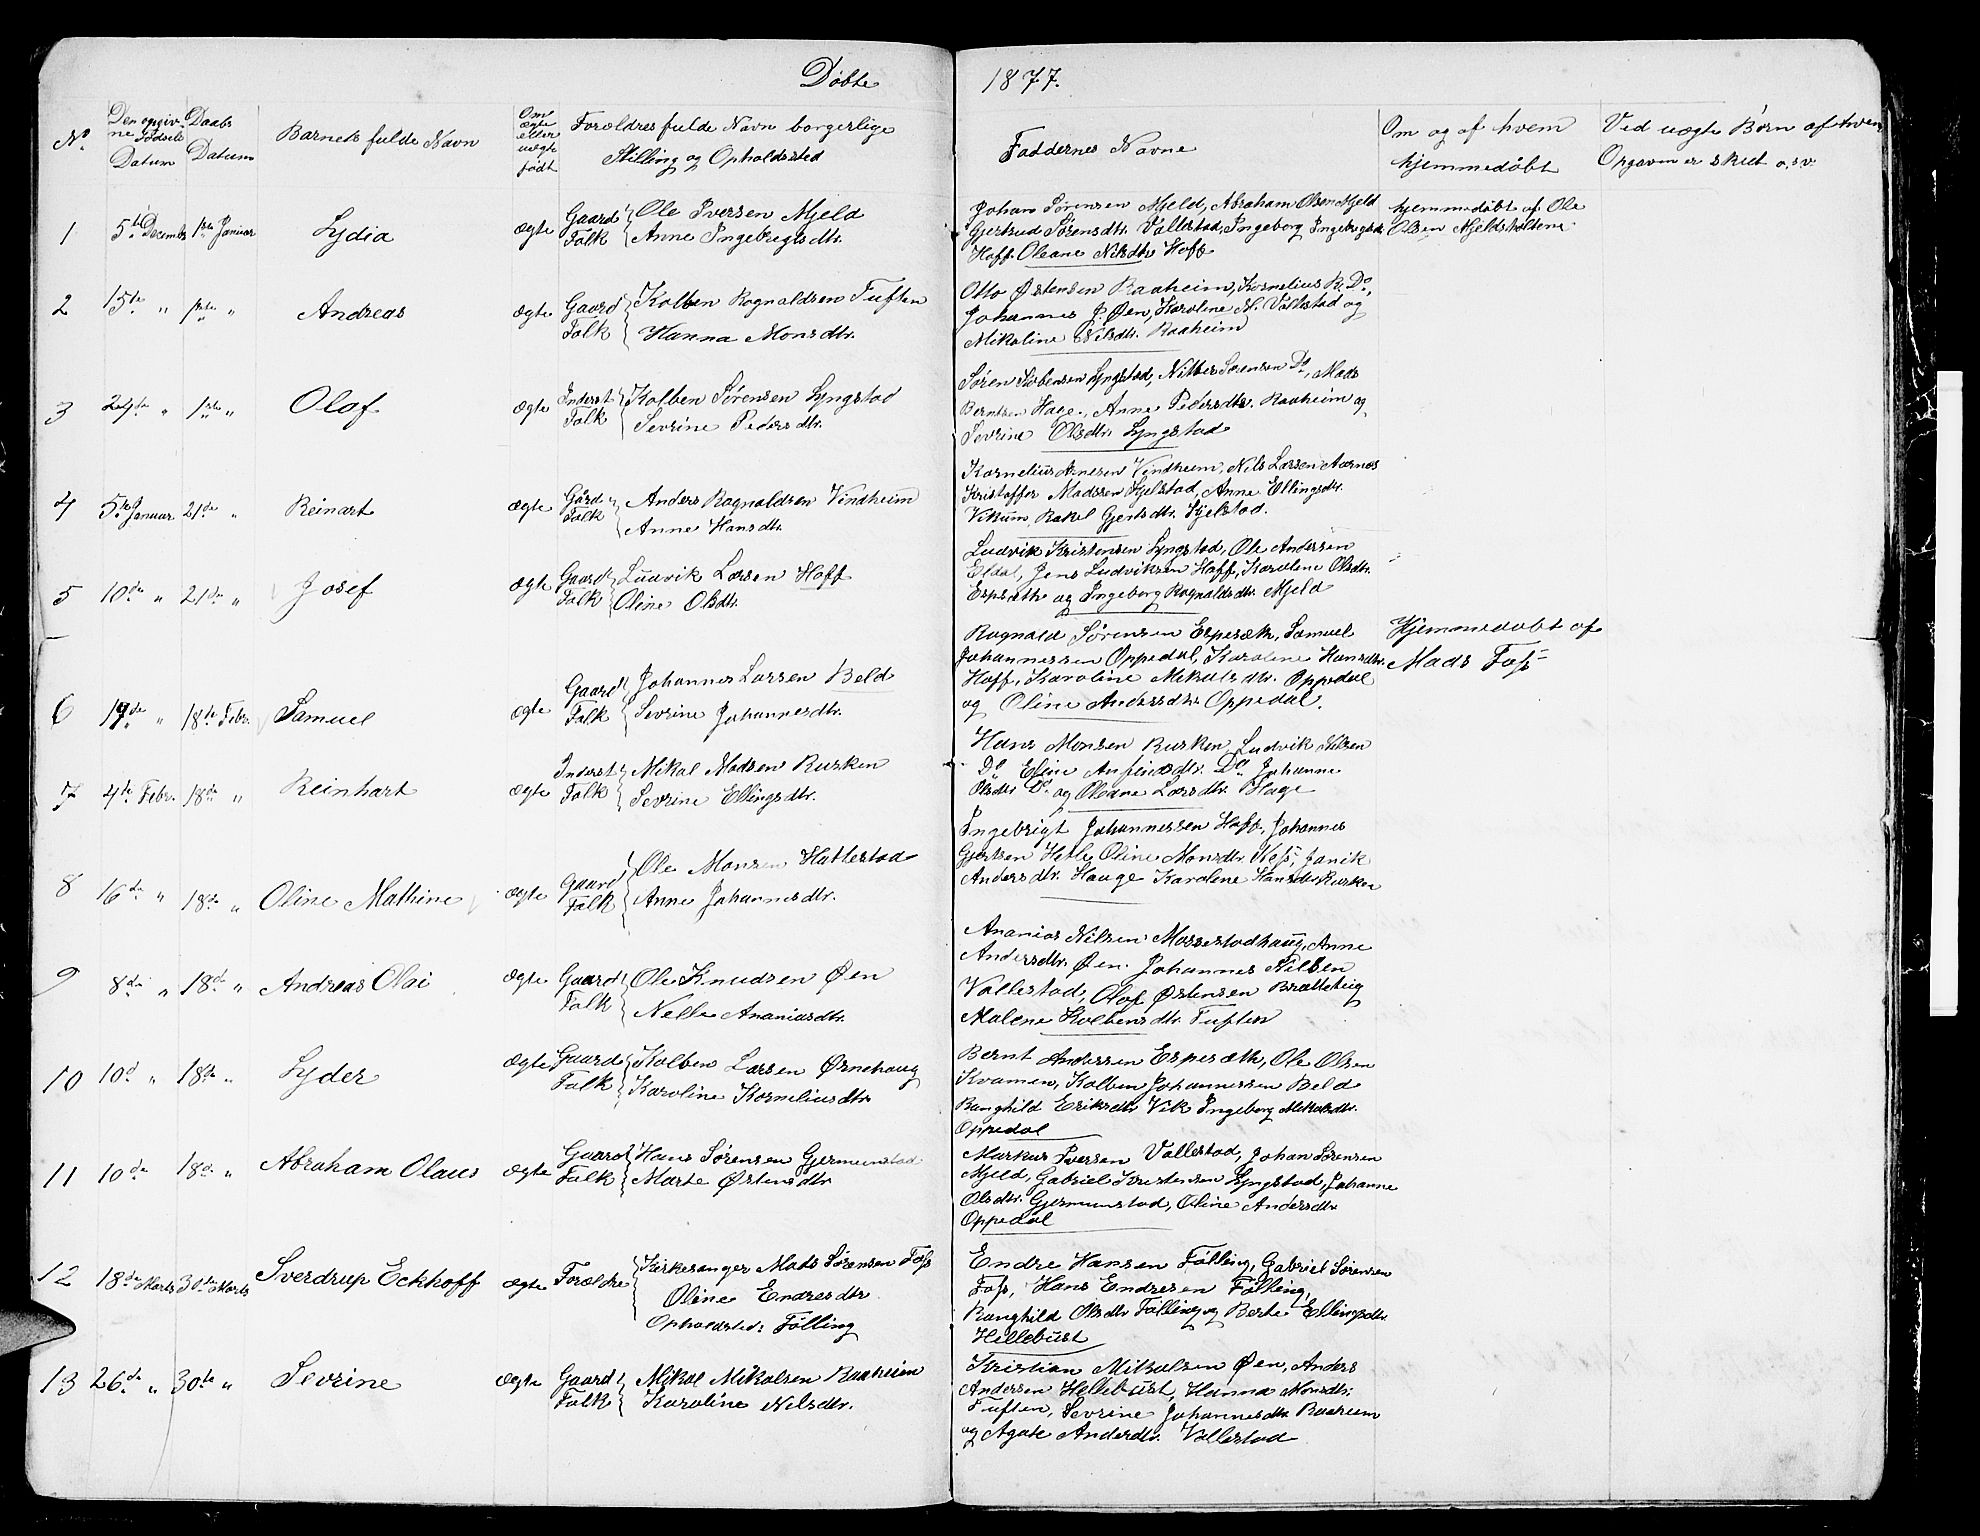 Døbte 1877.
No. Den opgivne Fødsels Datum Daabs Datum Barnets fulde Navn Om ægte eller uægte født Forældres fulde Navn borgerlige Stilling og Opholdssted Faddernes Navne Om og af hvem hjemmedøbt Ved uægte Børn af hvem Opgaven er skeet o.s.v.
1 5te Decembr 1ste Januar Lydia ægte Gaard Folk Ole Iversen Mjeld
Anne Ingebrigtsdtr.
Johan Sørensen Mjeld, Abraham Olsen Mjeld
Gjertrud Sørensdtr. Vallestad, Ingeborg Ingebrigtsdtr
Hoff Oleane Nilsdtr Hoff
hjemmedøbt af Ole
Olsen Mjeldsholtene
2 15de " 1ste " Andreas ægte Gaard Folk Kolben Rognaldsen Tuften
Hanna Monsdtr.
Otto Østensen Raaheim, Kornelius R. Do,
Johannes J Øen, Karoline N. Vallestad og
Mikaline Nilsdtr. Raaheim
3 24de " 1ste " Olaf ægte Inderst Folk Kolben Sørensen Lyngstad
Sevrine Pedersdtr.
Søren Lyngstad, Sørensen Do, Mads
Berntsen Hage, Anne Pedersdtr. Raaheim og
Sevrine Olsdtr. Lyngstad
4 5te Januar 21de " Reinart ægte Gård Folk Anders Ragnaldsen Vindheim
Anne Hansdtr.
Kornelius Arnesen Vindheim, Nils Larsen Aarnes
Kristoffer Madssen Hjelstad, Anne Ellingsdtr.
Vikum, Rakel Gjertsdtr. Hjelstad.
5 10de " 21de " Josef ægte Gaard Folk Ludvik Larsen Hoff
Oline Olsdtr.
Ludvik Kristensen Lyngstad, Ole Andersen
Eldal, Jens Ludviksen Hoff, Karolene Olsdtr.
Espesæth og Ingeborg Ragnaldsdtr. Mjeld
6 19de " 18de Febr. Samuel ægte Gaard Folk Johannes Larsen Beld
Sevrine Johannesdtr.
Ragnald Sørensen Espesæth, Samuel
Johannessen Oppedal, Karolene Hansdtr.
Hoff, Karoline Mikalsdtr. Oppedal
og Oline Andersdtr. Oppedal.
Hjemmedøbt af
Mads Foss
7 4de Febr. 18de " Reinhart ægte Inderst Folk Mikal Madsen Kusken
Sevrine Ellingsdtr.
Hans Monsen Kusken, Ludvik Nilsen
Do Eline Anfinsdtr. Do Johanne
Olsdtr. Do. og Oleane Larsdtr. Hage
8 16de " 18de " Oline Mathine ægte Gaard Folk Ole Monsen Hattestad
Anne Johannesdtr.
Ingebrigt Johannessen Hoff, Johannes
Gjertsen Oline Monsdtr. Janik
Andersdtr. Hauge Karolene Hansdtr. Kusken
9 8de " 18de " Andreas Olai ægte Gaard Folk Ole Knudsen Øen
Nelle Ananiasdtr.
Ananias Nilsen Massestadhaug, Anne
Andersdtr. Øen. Johannes Nilsen
Vallestad, Olaf Østensen Bratteteig
Malene Kolbensdtr Tuften
10 10d " 18de " Lyder ægte Gaard Folk Kolben Larsen Ørnehaug
Karoline Korneliusdtr
Bernt Anderssen Espesæth, Ole Olsen
Kvamen, Kolben Johannessen Beld
Ranghild Eriksdtr Vik Ingeborg Mikalsdtr.
Oppedal
11 10de " 18de " Abraham Olaus ægte Gaard Folk Hans Sørensen Gjermunstad
Marte Østensdtr
Markus Iversen Vallestad, Johan Sørensen
Mjeld, Gabriel Kristensen Lyngstad, Johanne
Olsdtr. Gjermunstad, Oline Andersdtr
Oppedal
12 18de Marts 30te Marts Sverdrup Eckhoff ægte Forældre Kirkesanger Mads Sørensen Foss
Oline Endresdtr
Opholdsted: Følling
Endre Hansen Følling, Gabriel Sørensen
Foss, Hans Endresen Følling,
Ranghild Olsdtr Følling og Berte Ellingsdtr
Hellebust
13 26de " 30te " Sevrine ægte Gaard Folk Mikal Mikalsen Raaheim
Karoline Nilsdtr.
Kristian Mikalsen Øen, Anders
Andersen Hellebust, Hanna Monsdtr.
Tuften, Sevrine Johannesdtr Raaheim
og Agate Andersdtr. Vallestad